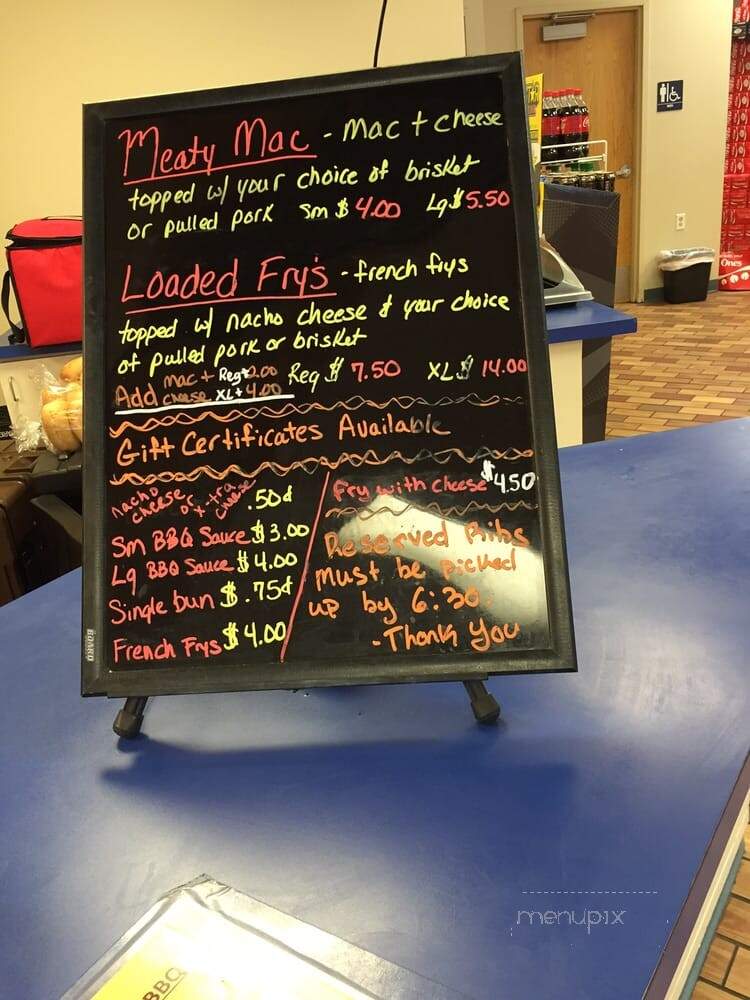 Meaty Mac - Mac + cheese
topped w/ your choice of brisket
or pulled pork Sm $ 4.00 Lg $ 5.50
Loaded Fry's - french frys
topped w/ nacho cheese & your choice
of pulled pork or brisket
Add mac + Reg+2.00 Reg $ 7.50 XL $ 14.00
cheese XL+ 4.00
Gift Certificates Available
nacho
cheese or x-tra
cheese .50¢
Sm BBQ Sauce $ 3.00
Lg BBQ Sauce $ 4.00
Single bun $ .75¢
French Frys $ 4.00
Fry with Cheese $4.50
Reserved Ribs
Must be picked
up by 6:30.
- Thank You
BOARD
Ones
BBQ
menupix